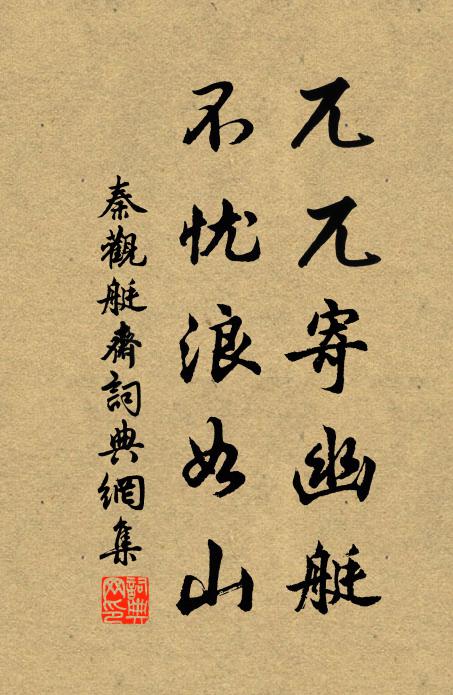 兀兀寄幽艇
不忧浪如山
秦觀艇齋詞典網集
詞典网印